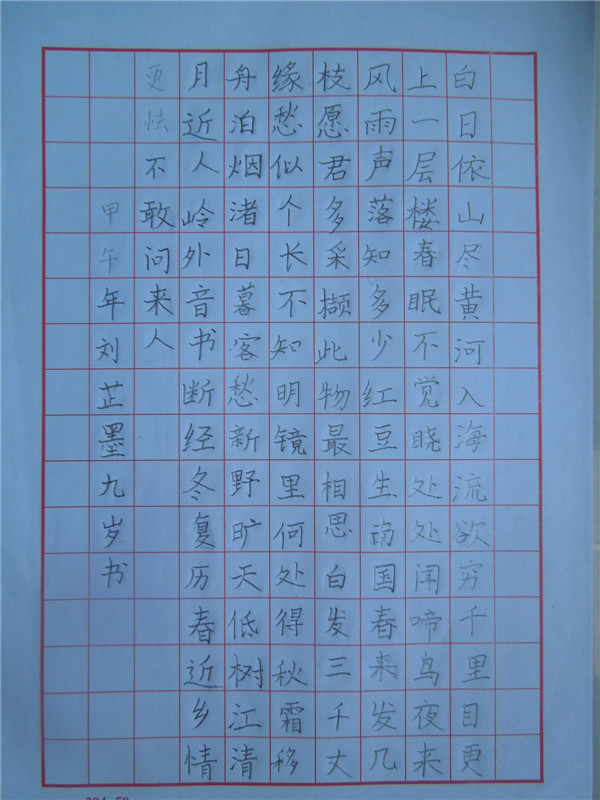 白日依山尽黄河入海流欲穷千里目更
上一层楼春眠不觉晓处处闻啼鸟夜来
风雨声落知多少红豆生南国春来发几
枝愿君多采撷此物最相思白发三千丈
缘愁似个长不知明镜里何处得秋霜移
舟泊烟渚日暮客愁新野旷天低树江清
月近人岭外音书断经冬复历春近乡情
更怯不敢问来人
甲午年刘芷墨九岁书